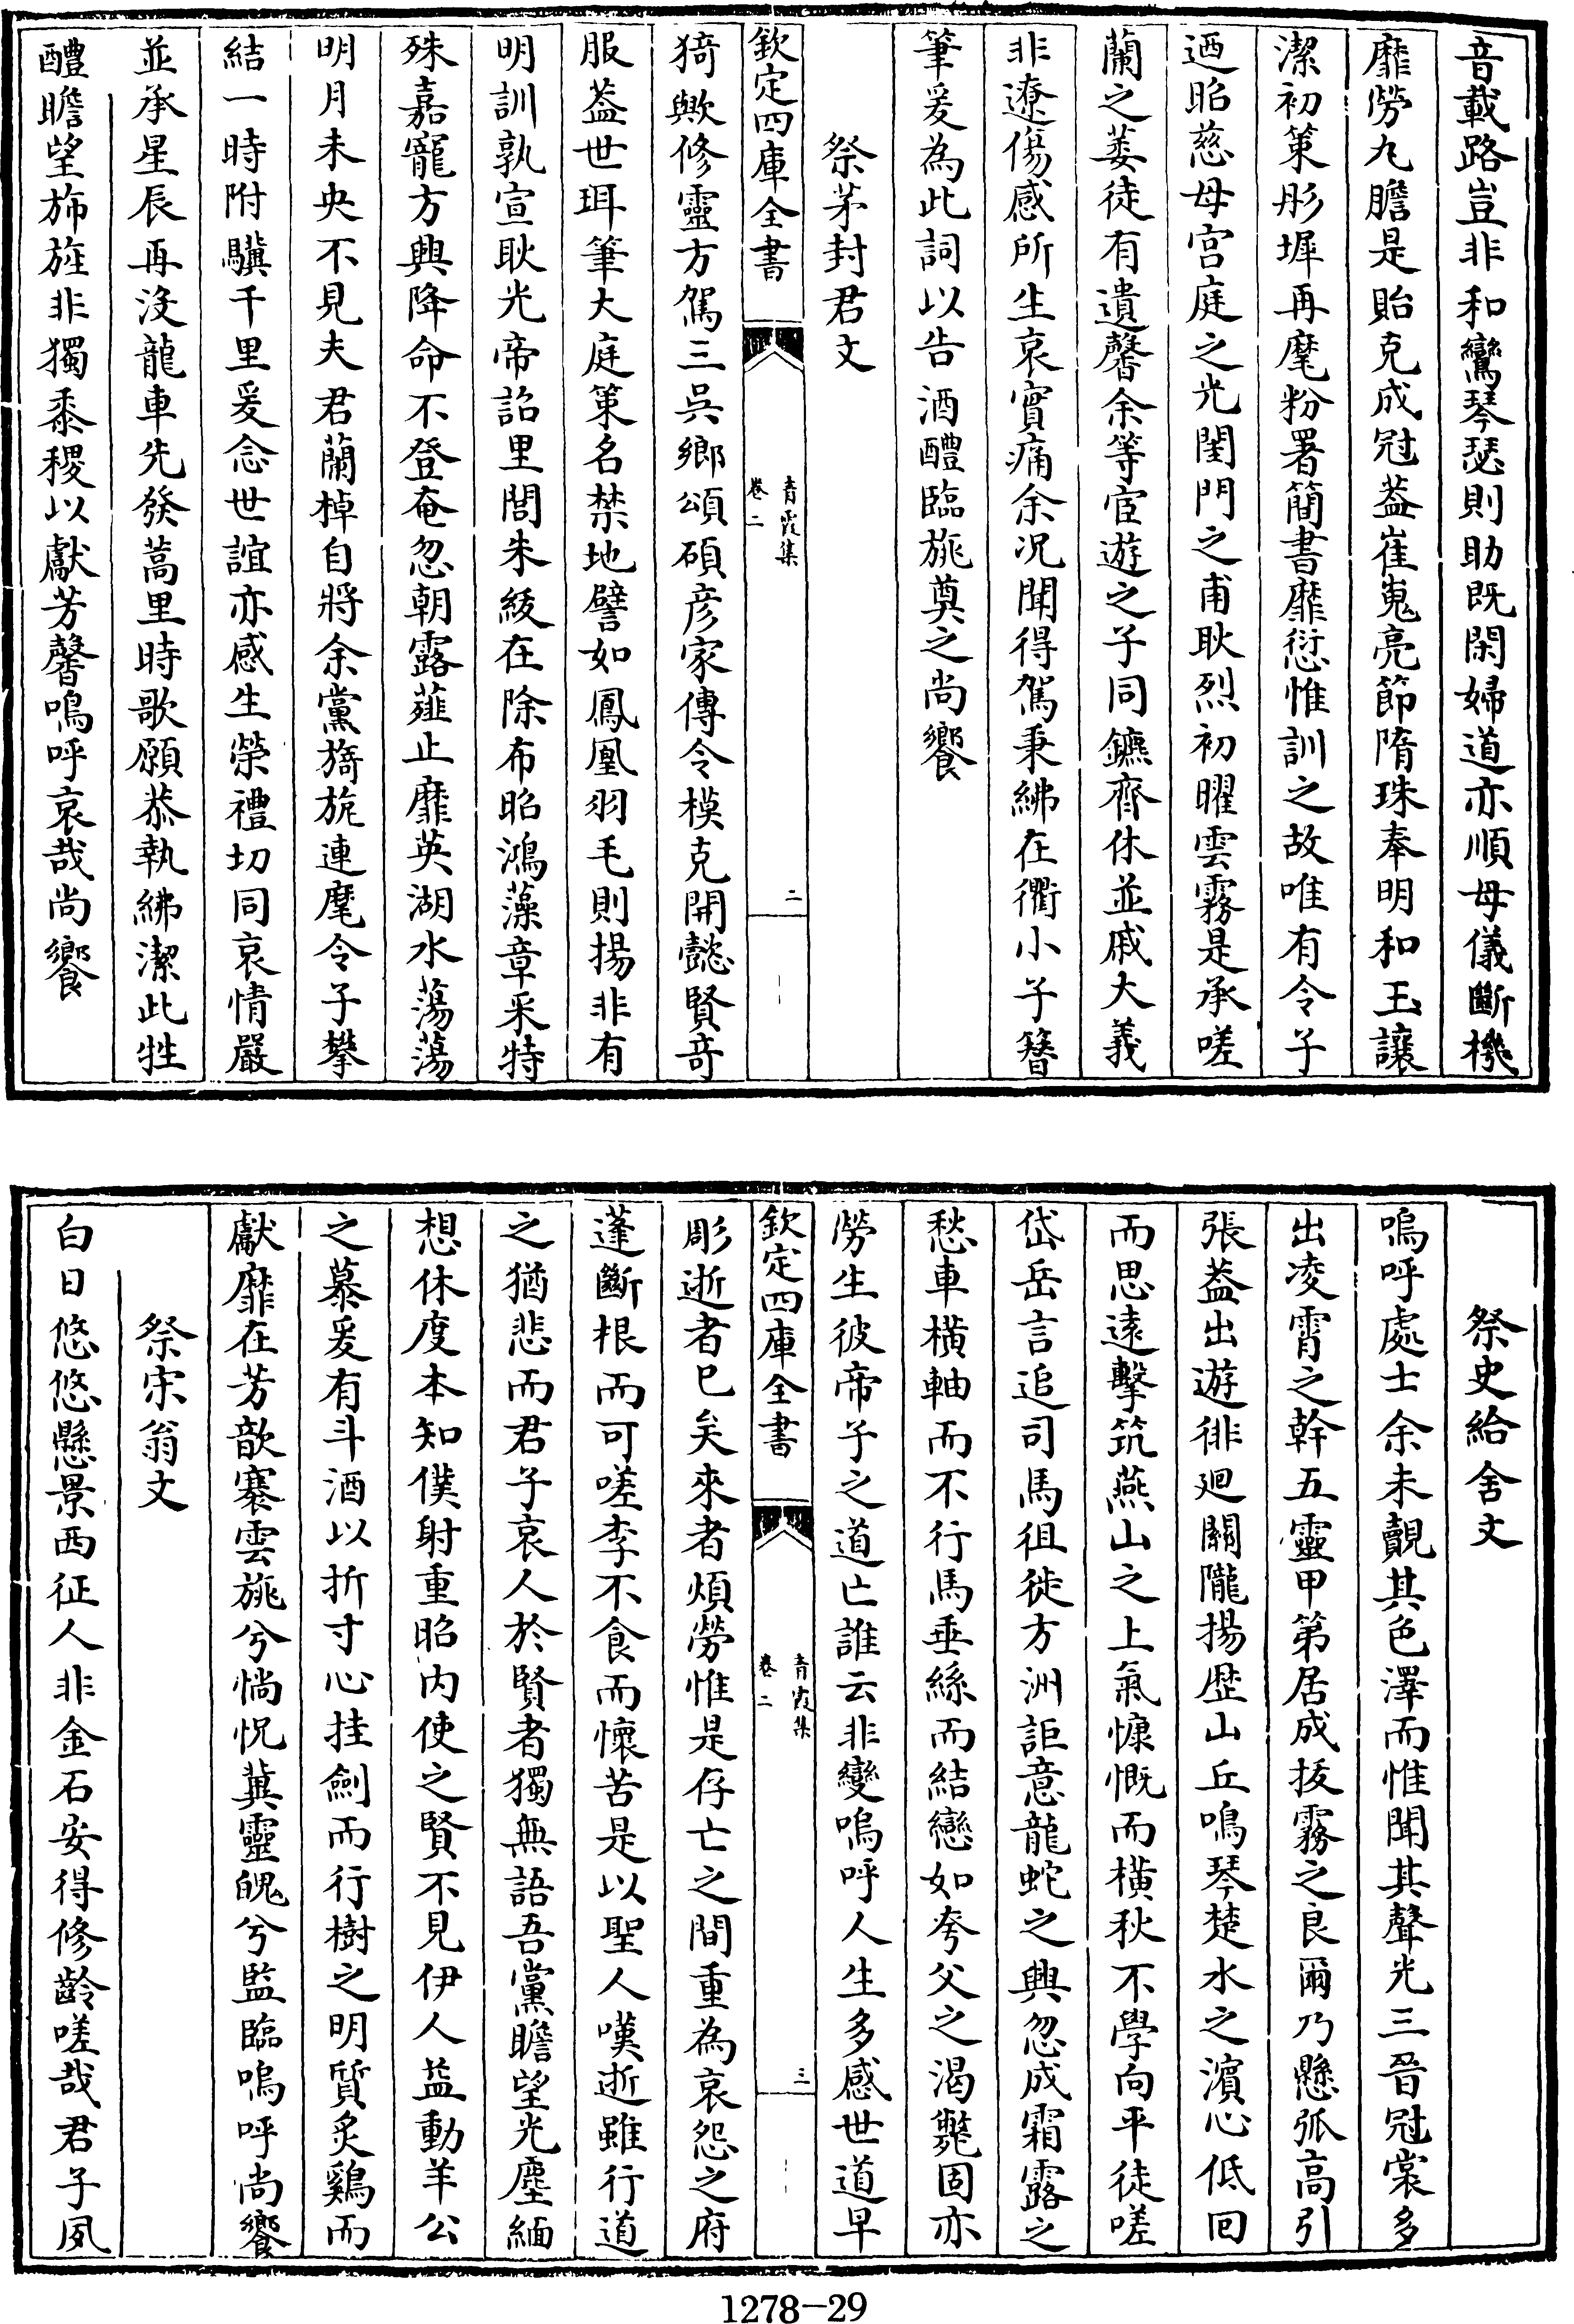 音載路豈非和鸞琴瑟則助既閑婦道亦順母儀斷機
靡勞九膽是貽克成冠葢崔嵬亮節隋珠奉明和玉讓
潔初筮彤墀再麾粉署簡書靡愆惟訓之故唯有令子
迺昭慈母宫庭之光閨門之甫耿烈初曜雲霧是承嗟
蘭之萎徒有遺馨余等宦遊之子同鑣齊休並戚大義
非遼傷感所生哀實痛余况聞得駕秉紼在衢小子簪
筆爰為此詞以告酒醴臨旐奠之尚饗
祭茅封君文
欽定四庫全書
青霞集
卷二
二
猗歟修靈方駕三吳鄉頌碩彦家傳令模克開懿賢竒
服葢世珥筆大庭策名禁地譬如鳳凰羽毛則揚非有
明訓孰宣耿光帝詔里閭朱綬在除布昭鴻藻章采特
殊嘉寵方興降命不登奄忽朝露薤止靡英湖水蕩蕩
明月未央不見夫君蘭棹自將余黨旖旎連麾令子攀
結一時附驥千里爰念世誼亦感生榮禮切同哀情嚴
並承星辰再沒龍車先發蒿里時歌願恭執紼潔此牲
醴瞻望旆旌非獨黍稷以獻芳馨嗚呼哀哉尚饗
祭史給舍文
嗚呼處士余未覿其色澤而惟聞其聲光三晉冠裳多
出凌霄之幹五靈甲第居成拔霧之良爾乃懸弧高引
張葢出遊徘廻關隴揚歴山丘鳴琴楚水之濱心低回
而思遠擊筑燕山之上氣慷慨而橫秋不學向平徒嗟
岱岳言追司馬徂徙方洲詎意龍蛇之興忽成霜露之
愁車橫軸而不行馬垂絲而結戀如夸父之渴斃固亦
勞生彼帝子之道亡誰云非變嗚呼人生多感世道早
欽定四庫全書
青霞集
卷二
三
彫逝者已矣來者煩勞惟是存亡之間重為哀怨之府
蓬斷根而可嗟李不食而懷苦是以聖人嘆逝雖行道
之猶悲而君子哀人於賢者獨無語吾黨瞻望光塵緬
想休度本知僕射重昭内使之賢不見伊人益動羊公
之慕爰有斗酒以折寸心挂劍而行樹之明質炙鷄而
獻靡在芳歆褰雲旐兮惝怳冀靈魄兮監臨嗚呼尚饗
祭宋翁文
白日悠悠懸景西征人非金石安得修齡嗟哉君子夙
1278-29